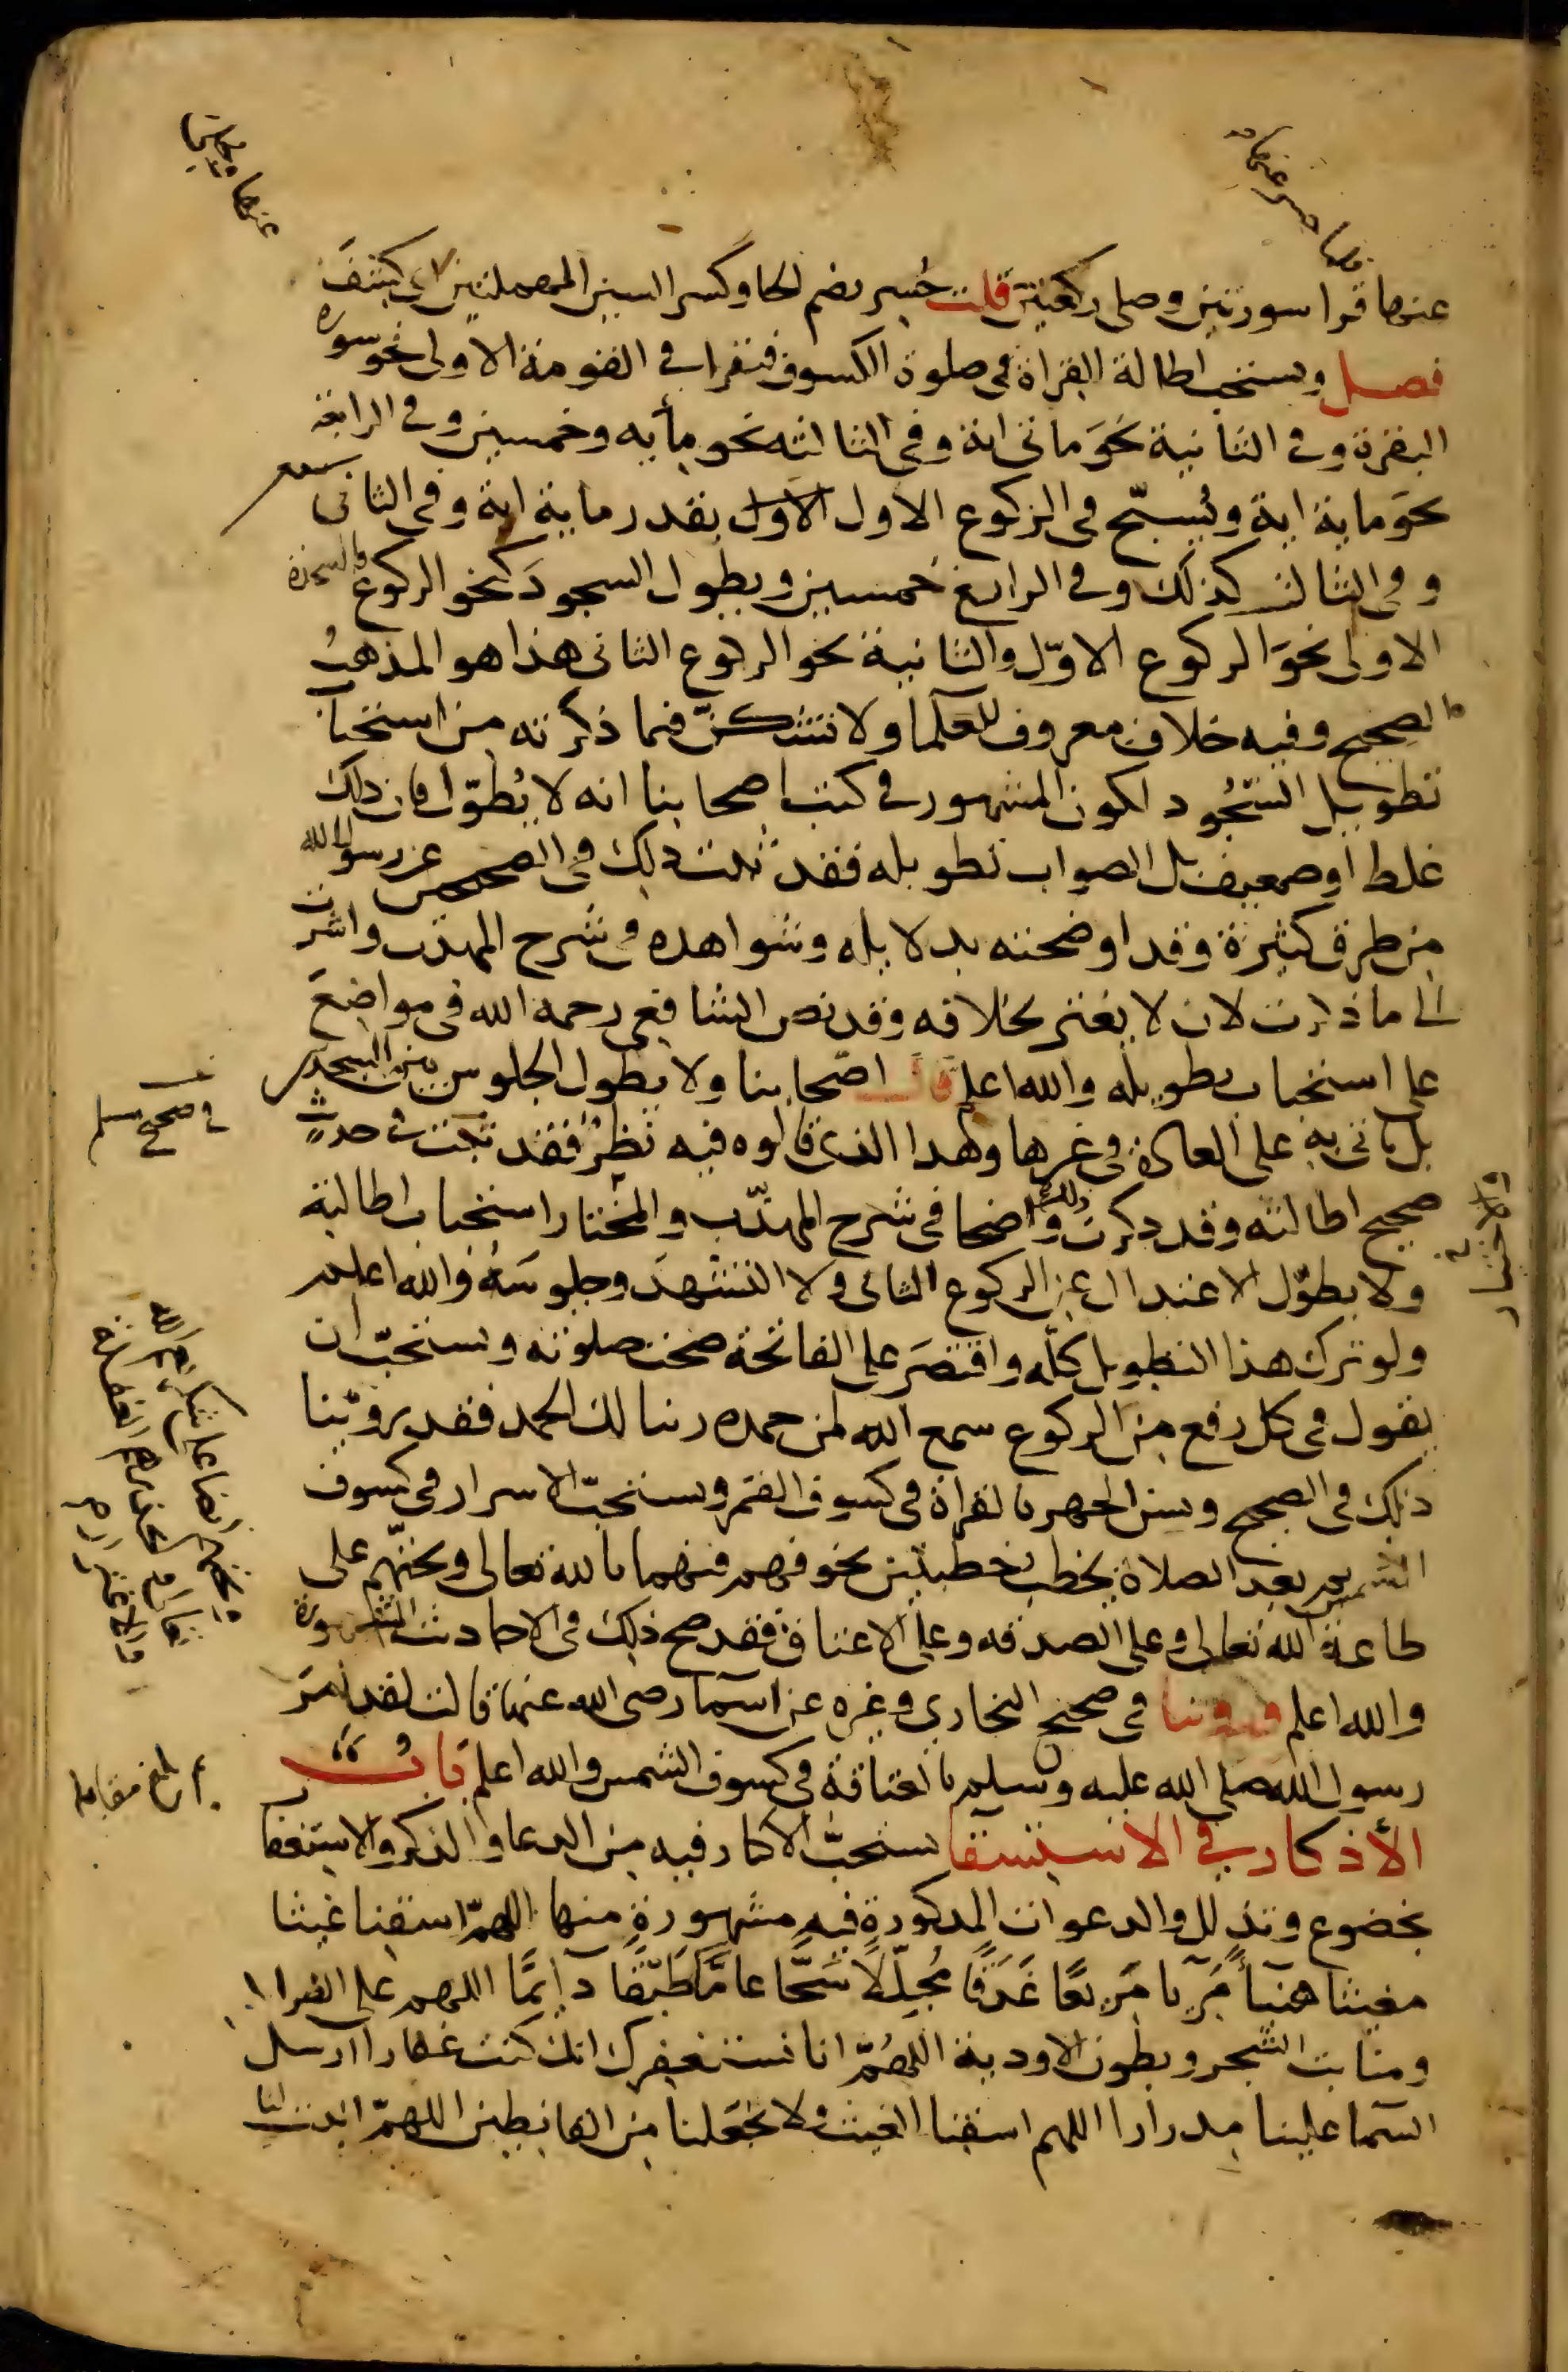 عنها قرا سورتين وصلى ركعتين قلت حُسِر بضم الحا وكسر السين المهملتين اي كشف
فصل ويستحب اطالة القراة في صلوة الكسوف فتقرا في القومة الاولى نحو سورة
البقرة وفي الثانية نحَو ماتى اية وفي الثالثه نحو مأيه وخمسين وفي الرابعة
نحَو ماية اية ويُسبّح في الركوع الاول الاول بقدر ماية اية وفي الثاني سبعين
وفي الثالث كذلك وفي الرابع خمسين ويطول السجودَ كنحو الركوع والسجدة
الاولى نحوَ الركوع الاوّل والثانية نحو الركوع الثاني هذا هو المذهبُ
الصحيح وفيه خلاف معروف للعلما ولا تشكنّ فيما ذكرته من استحباب
تطويل السّجُود لكون المشهور في كتب اصحابنا انه لا يُطوّل فان ذلك
غلط او ضعيف بل الصواب تطويله فقد ثبت ذلك في الصحيحين عن رسول الله
من طرق كثيرة وقد اوضحته بدلايله وشواهده في شرح المهذب واشرت
الى ما ذكرت لان لا يغتر بخلافه وقد نص الشافعي رحمه الله في مواضعَ
على استحباب تطويله والله اعلم قال اصحابنا ولا يطول الجلوس بين السجدتين
بل ياتى به على العادة في غيرها وهذا الذي قالوه فيه نَظرٌ فقد ثبت في حديثٍ
صحيح اطالته وقد ذكرت ذلك واضحا في شرح المهذّب والمختار استحباب اطالته
ولا يطوّل الاعتدال عن الركوع الثاني ولا التشهدَ وجلوسَهُ والله اعلم
ولو ترك هذا التطويل كلّه واقتصَر على الفاتحة صحت صلوته ويستحبّ ان
يقول في كل رفع من الركوع سمع الله لمن حمده ربنا لك الحمد فقد روّينا
ذلك في الصحيح ويسن الجهر بالقراة في كسوف القمر ويستحبّ الاسرار في كسوف
الشمس ثم بعد الصلاة يخطب خطبتين يخوفهم فيهما بالله تعالى ويحثّهم على
طاعة الله تعالى وعلى الصدقه وعلى الاعتاق فقد صح ذلك في الاحاديث المشهورة
والله اعلم وروينا في صحيح البخاري وغيره عن اسمآ رضي الله عنها قالت لقد امَرَ
رسول الله صلى الله عليه وسلم بالعتاقة في كسوف الشمس والله اعلم بَابُ
الأذكار في الاستسقا يستحبّ الاكثار فيه من الدعا والذكر والاستغفار
بخضوع وتذلل والدعوات المذكورة فيه مشهورة منها اللهمّ اسقنا غيثا
مغيثا هنيّأ مَرِيا مَرِيعًا غَدَقًا مُجلّلاً سَحًّا عامًّا طَبَقًا دآيمًا اللهم على الضراب
ومنابت الشجر وبطون الاودية اللهُمّ انا نستغفرك انك كنت غفارا ارسل
السمآ علينا مدرارا اللهم اسقنا الغيث ولا تجعلنا من القانطين اللهمّ انبت لنا
في صحيح مسلم
بلغ مقابلة